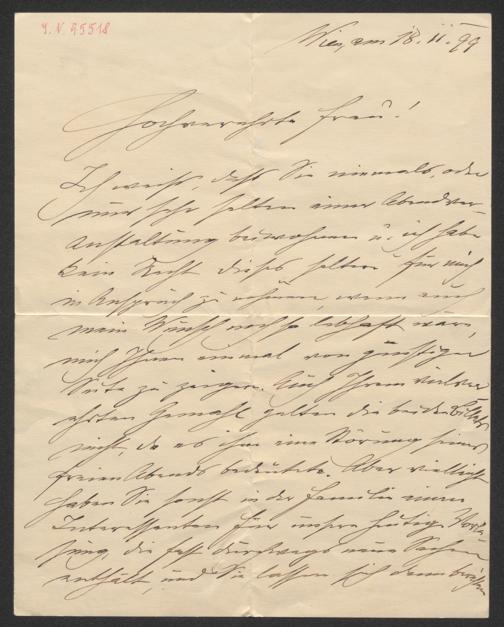 I. N. 95518
Wien, am 18. II. 99
Hochverehrte Frau!
Ich weiß, daß Sie niemals, oder
nur sehr selten einer Abendver-
anstaltung beiwohnen u. ich habe
kein Recht dieses seltene für mich
in Anspruch zu nehmen, wenn auch
mein Wunsch noch so lebhaft wäre,
mich Ihnen einmal von günstiger
Seite zu zeigen. Auch Ihrem vielver-
ehrten Gemahl gelten die beiden Billets
nicht, da es ihm eine Störung seines
freien Abends bedeutete. Aber vielleicht
haben Sie sonst in der Familie einen
Interessenten für unsere heutige Vorle-
sung, die fast durchwegs neue Sachen
enthält, und Sie lassen sich dann